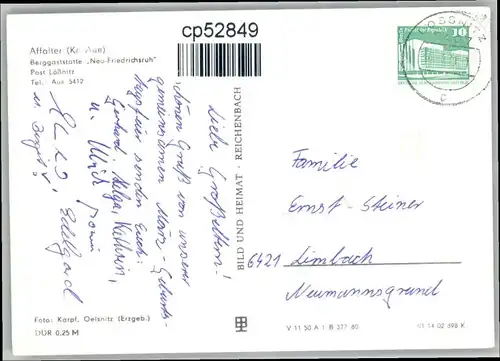 Affalter (Kr. Aue)
Berggaststätte „Neu-Friedrichsruh"
Post Lößnitz
Tel.: Aue 5412
cp52849
10
C
Liebe Großeltern!
schönen Gruß von unserer
gemeinsamen März-Geburts-
tagsfeier senden Euch
Gerhard, Helga, Kathrin,
u. Ulrich
Edelgard
u. Birgit
BILD UND HEIMAT · REICHENBACH
Familie
Ernst Steiner
6421 Limbach
Neumannsgrund
Foto: Karpf, Oelsnitz (Erzgeb.)
DDR 0,25 M
V 11 50 A 1 B 377 80
01 14 02 698 K